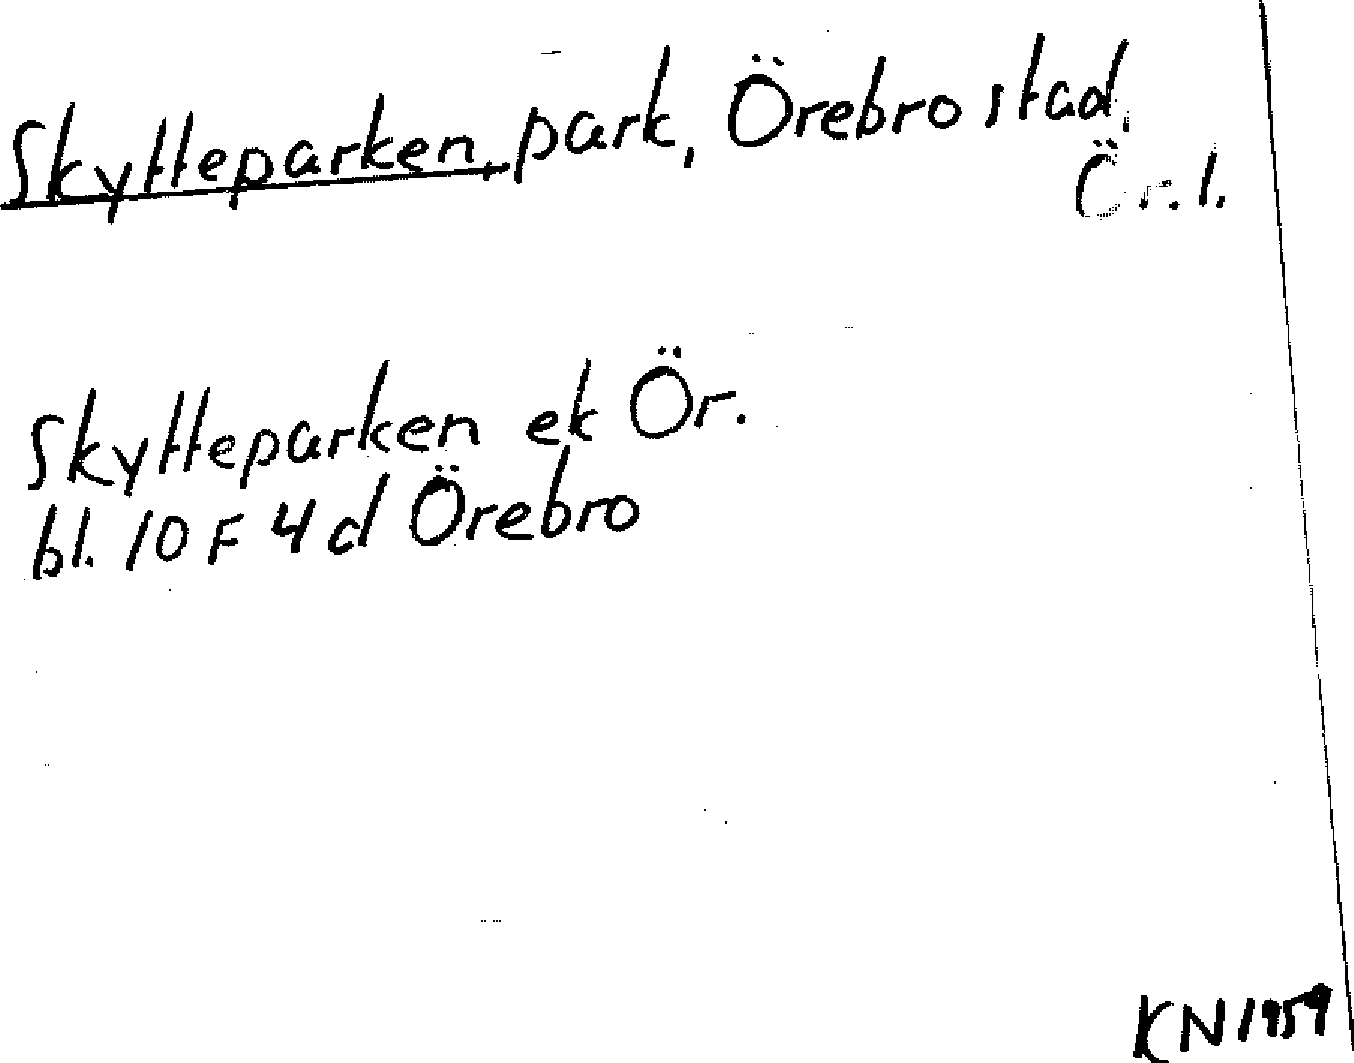 Skytteparken, park, Örebro stad,
Ör. l.
Skytteparken ek Ör.
bl. 10 F 4 d Örebro
KN 1959